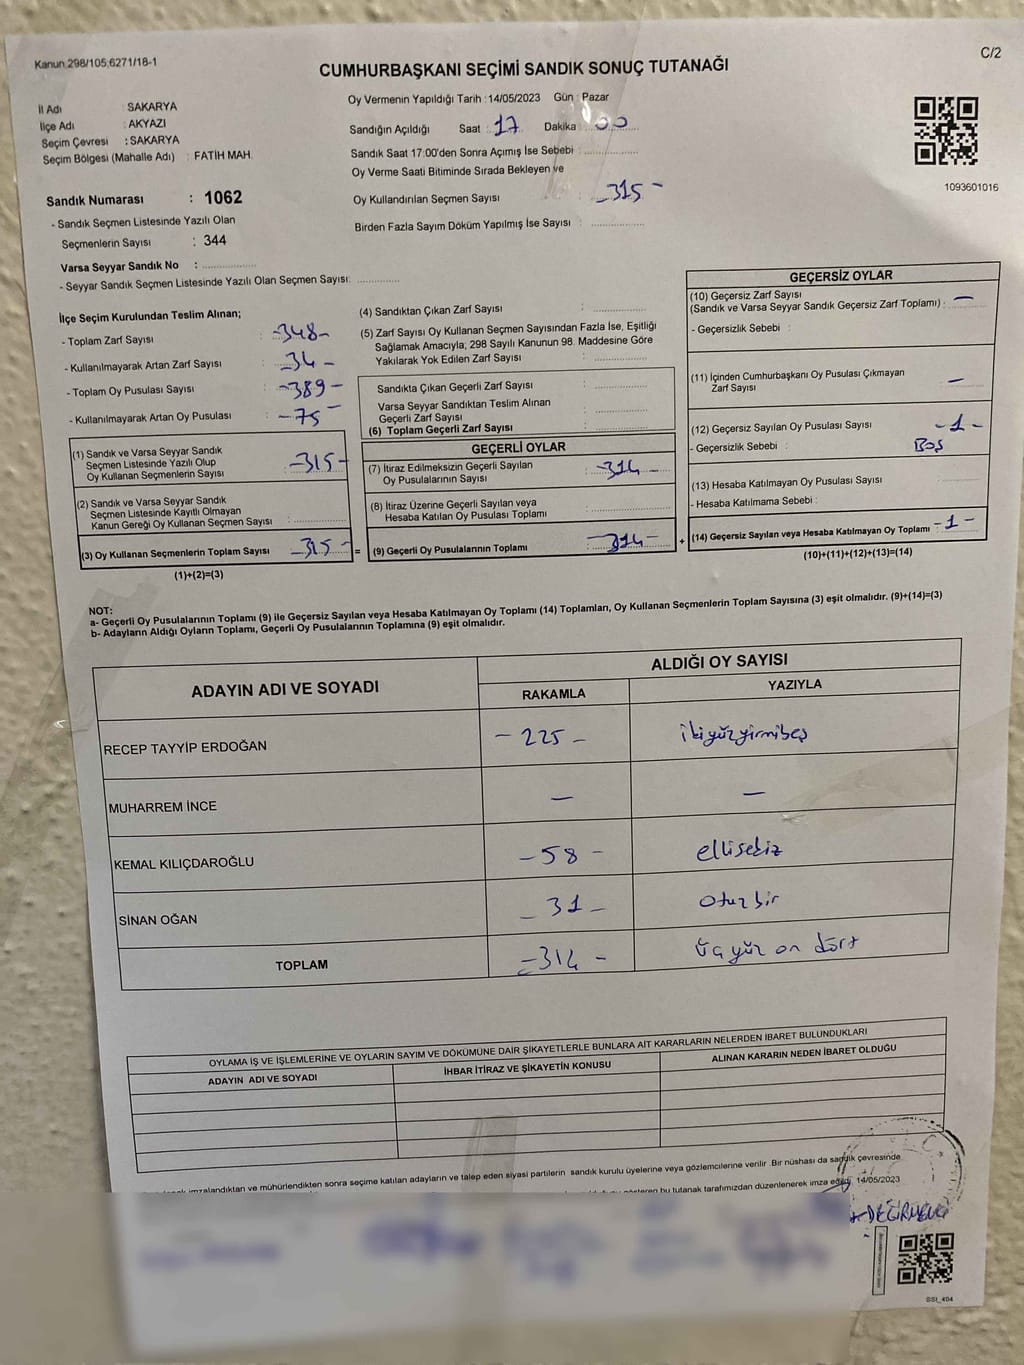 Kanun 298/105;6271/18-1
C/2
CUMHURBAŞKANI SEÇİMİ SANDIK SONUÇ TUTANAĞI
İl Adı : SAKARYA
İlçe Adı : AKYAZI
Seçim Çevresi : SAKARYA
Seçim Bölgesi (Mahalle Adı) : FATİH MAH.
Sandık Numarası : 1062
- Sandık Seçmen Listesinde Yazılı Olan
Seçmenlerin Sayısı : 344
Varsa Seyyar Sandık No :
- Seyyar Sandık Seçmen Listesinde Yazılı Olan Seçmen Sayısı:
Oy Vermenin Yapıldığı Tarih : 14/05/2023 Gün : Pazar
Sandığın Açıldığı Saat : 17 Dakika : 00
Sandık Saat 17:00'den Sonra Açımış İse Sebebi :
Oy Verme Saati Bitiminde Sırada Bekleyen ve
Oy Kullandırılan Seçmen Sayısı : -315-
Birden Fazla Sayım Döküm Yapılmış İse Sayısı :
1093601016
İlçe Seçim Kurulundan Teslim Alınan;
- Toplam Zarf Sayısı : -348-
- Kullanılmayarak Artan Zarf Sayısı : -34-
- Toplam Oy Pusulası Sayısı : -389-
- Kullanılmayarak Artan Oy Pusulası : -75-
(1) Sandık ve Varsa Seyyar Sandık
Seçmen Listesinde Yazılı Olup
Oy Kullanan Seçmenlerin Sayısı : -315-
(2) Sandık ve Varsa Seyyar Sandık
Seçmen Listesinde Kayıtlı Olmayan
Kanun Gereği Oy Kullanan Seçmen Sayısı :
(3) Oy Kullanan Seçmenlerin Toplam Sayısı -315-
(1)+(2)=(3)
(4) Sandıktan Çıkan Zarf Sayısı :
(5) Zarf Sayısı Oy Kullanan Seçmen Sayısından Fazla İse, Eşitliği
Sağlamak Amacıyla; 298 Sayılı Kanunun 98. Maddesine Göre
Yakılarak Yok Edilen Zarf Sayısı :
Sandıkta Çıkan Geçerli Zarf Sayısı :
Varsa Seyyar Sandıktan Teslim Alınan
Geçerli Zarf Sayısı :
(6) Toplam Geçerli Zarf Sayısı :
GEÇERLİ OYLAR
(7) İtiraz Edilmeksizin Geçerli Sayılan
Oy Pusulalarının Sayısı : -314-
(8) İtiraz Üzerine Geçerli Sayılan veya
Hesaba Katılan Oy Pusulası Toplamı :
= (9) Geçerli Oy Pusulalarının Toplamı : -314- +
GEÇERSİZ OYLAR
(10) Geçersiz Zarf Sayısı
(Sandık ve Varsa Seyyar Sandık Geçersiz Zarf Toplamı) : —
- Geçersizlik Sebebi :
(11) İçinden Cumhurbaşkanı Oy Pusulası Çıkmayan
Zarf Sayısı : —
(12) Geçersiz Sayılan Oy Pusulası Sayısı : -1-
- Geçersizlik Sebebi : Boş
(13) Hesaba Katılmayan Oy Pusulası Sayısı :
- Hesaba Katılmama Sebebi :
(14) Geçersiz Sayılan veya Hesaba Katılmayan Oy Toplamı : -1-
(10)+(11)+(12)+(13)=(14)
NOT:
a- Geçerli Oy Pusulalarının Toplamı (9) ile Geçersiz Sayılan veya Hesaba Katılmayan Oy Toplamı (14) Toplamları, Oy Kullanan Seçmenlerin Toplam Sayısına (3) eşit olmalıdır. (9)+(14)=(3)
b- Adayların Aldığı Oyların Toplamı, Geçerli Oy Pusulalarının Toplamına (9) eşit olmalıdır.
ADAYIN ADI VE SOYADI
ALDIĞI OY SAYISI
RAKAMLA YAZIYLA
RECEP TAYYİP ERDOĞAN -225- ikiyüzyirmibeş
MUHARREM İNCE — —
KEMAL KILIÇDAROĞLU -58- ellisekiz
SİNAN OĞAN -31- otuzbir
TOPLAM -314- üçyüz on dört
OYLAMA İŞ VE İŞLEMLERİNE VE OYLARIN SAYIM VE DÖKÜMÜNE DAİR ŞİKAYETLERLE BUNLARA AİT KARARLARIN NELERDEN İBARET BULUNDUKLARI
ADAYIN ADI VE SOYADI İHBAR İTİRAZ VE ŞİKAYETİN KONUSU ALINAN KARARIN NEDEN İBARET OLDUĞU
imzalandıktan ve mühürlendikten sonra seçime katılan adayların ve talep eden siyasi partilerin sandık kurulu üyelerine veya gözlemcilerine verilir. Bir nüshası da sandık çevresinde
gösteren bu tutanak tarafımızdan düzenlenerek imza edildi. 14/05/2023
SSI_404